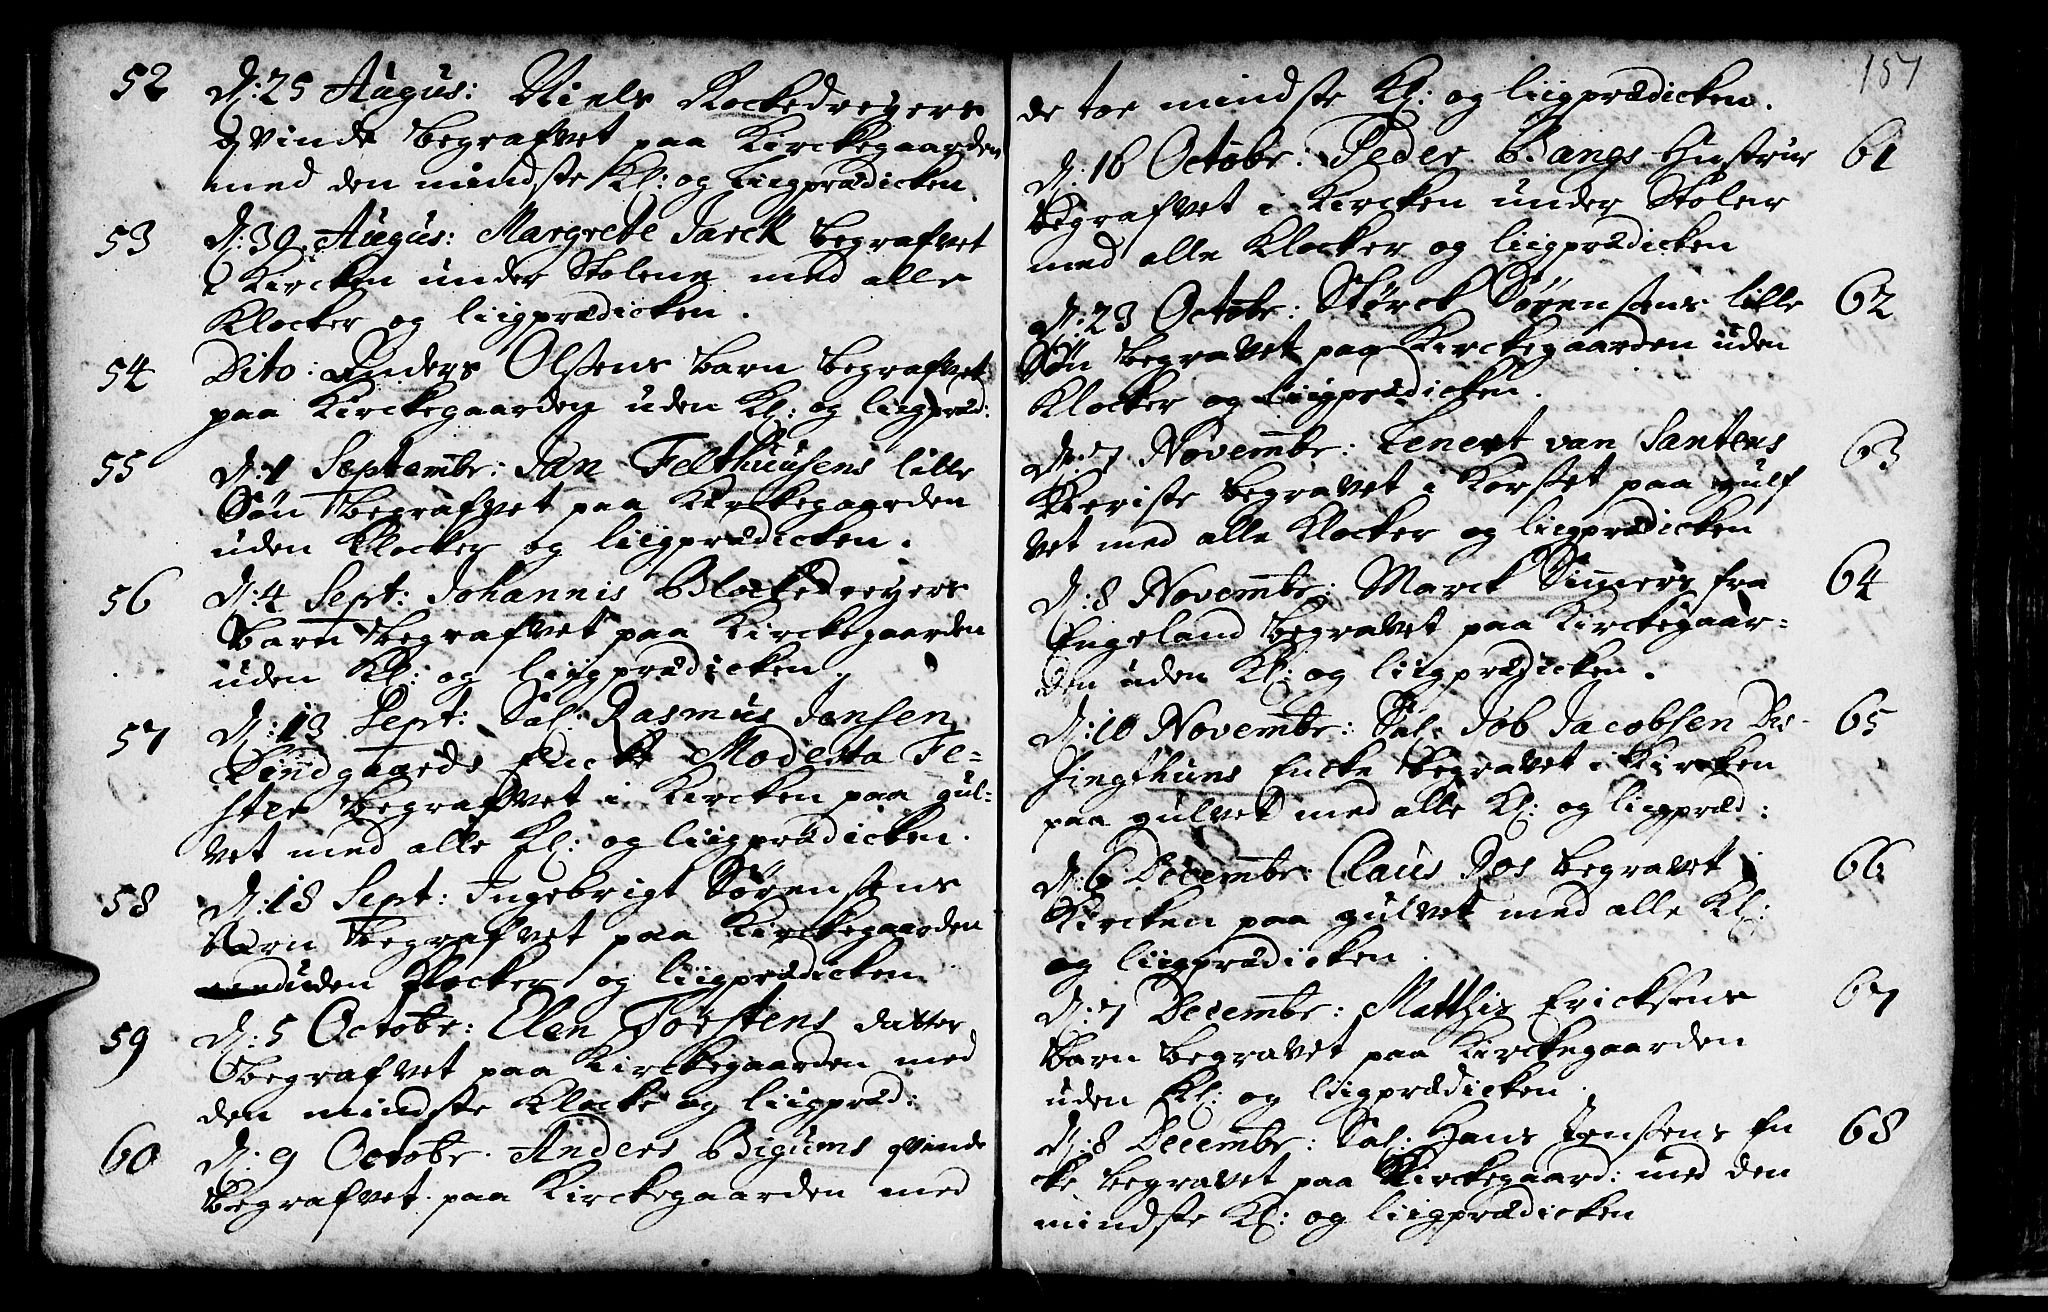 52 D: 25 Augus: Niels Rockedreyers
qvinde begrafvet paa Kirckegaarden
med den mindste Kl: og Liigprædicken
53 D: 30 Augus: Margrete Jarck begrafvet
i Kircken under Stolene med alle
Klocker og liigprædicken.
54 Dito: Anders Olsens barn begrafvet
paa Kirckegaarden uden Kl: og liigpræd:
55 D: 1 Septembr: Jan Felthuusens lille
Søn begrafvet paa Kirckegaarden
uden Klocker og liigprædicken.
56 D: 4 Sept: Johannis Blockedreyers
barn begrafvet paa Kirckegaarden
uden Kl: og liigprædicken.
57 D: 13 Sept: Sal: Rasmus Jensen
Lindgaards Encke Modesta Fe-
ster begrafvet i Kircken paa gul-
vet med alle Kl: og liigprædicken.
58 D: 18 Sept: Ingebrigt Sørensens
barn begrafvet paa Kirckegaarden
uden Klocker og liigprædicken
59 D: 5 Octobr: Elen Torstens datter
begrafvet paa Kirckegaarden med
den mindste Klocke og liigpræd:
60 D: 9 Octobr. Anders Bigums qvinde
begrafvet paa Kirckegaarden med
157
de toe mindste Kl: og liigprædicken.
D: 16 Octobr: Peder Bangs Hustrue 61
begrafvet i Kircken under Stolene
med alle Klocker og liigprædicken
D: 23 Octobr: Størck Sørensens lille 62
Søn begravet paa Kirckegaarden uden
Klocker og liigprædicken.
D: 7 Novembr: Lenert van Santens 63
Kieriste begravet i Korset paa gulf
vet med alle Klocker og liigprædicken
D: 8 Novembr: Marck Simers fra 64
Engeland begravet paa Kirckegaar-
den uden Kl: og liigprædicken.
D: 10 Novembr: Sal: Job Jacobsen Dis- 65
Jingthuns Encke begravet i Kircken
paa gulvet med alle Kl: og liigpræd:
D: 6 Decembr: Claus Dos begravet i 66
Kircken paa gulvet med alle Kl:
og liigprædicken.
D: 7 Decembr: Matthis Ericksens 67
barn begravet paa Kirckegaarden
uden Kl: og liigprædicken.
D: 8 Decembr: Sal: Hans Jensens En 68
cke begravet paa Kirckegaard: med den
mindste Kl: og liigprædicken